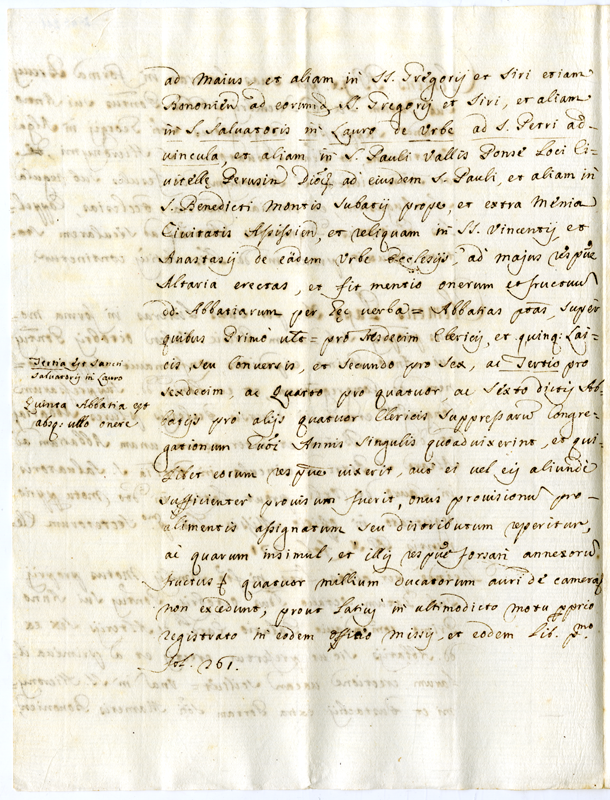 ad Maius, et aliam in SS. Gregorij et Siri etiam
Bononien ad eorund SS. Gregorij et Siri, et aliam
in S. Salvatoris in Lauro de Urbe ad S. Petri ad-
vincula, et aliam in S. Pauli Vallis Ponse Loci Ci-
vitelle Perusin Dioc ad eiusdem S. Pauli, et aliam in
S. Benedicti Montis Subatij prope, et extra Menia
Civitatis Assisien, et reliquam in SS. Vincentij, et
Anastasij de eadem Urbe Ecclesijs, ad majus respve
Altaria erectas, et fit mentio onerum et fructuu
dd. Abbatiarum per hec verba = Abbatias ptas, super
quibus Primo = pro tresdecim Clericis, et quinq: Lai-
cis, seu Conversis, et Secundo pro sex, ac Tertio pro
Tertia est Sancti
Salvatoris in Lauro
sexdecim, ac Quarto pro quatuor, ac Sexto dictis Ab-
Quinta Abbatia est
absq: ullo onere
batijs pro alijs quatuor Clericis suppressaru Congre-
gationum Annis Singulis quoadvixerint, et qui
libet eorum respve vixerit, aut ei vel eis aliunde
sufficienter provisum fuerit, onus provisionu pro
alimentis assignatum seu distributum reperitur,
ac quarum insimul, et illis respve forsan annexoru
fructus quatuor millium ducatorum auri de camera
non excedunt, prout latius in ultimodicto motu pprio
registrato in eodem offitio missis, et eodem lib. pmo
fol. 261.